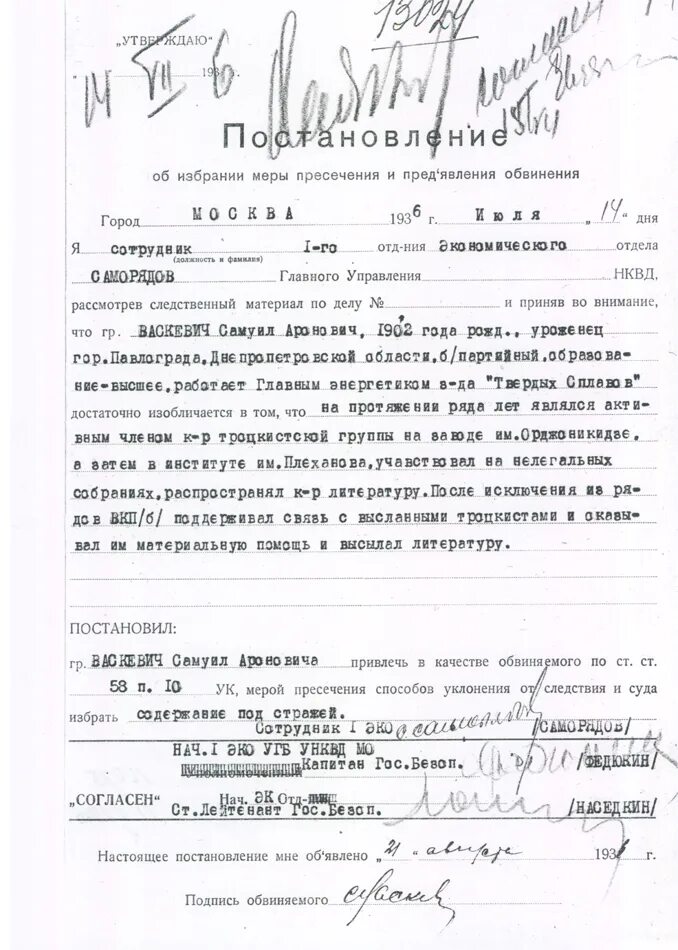 13024
„УТВЕРЖДАЮ“
„14 VII 1936
Постановление
об избрании меры пресечения и пред'явления обвинения
Город МОСКВА 1936 г. Июля „14“ дня
Я сотрудник I-го отд-ния Экономического отдела
(должность и фамилия)
САМОРЯДОВ Главного Управления НКВД,
рассмотрев следственный материал по делу № и приняв во внимание,
что гр. ВАСКЕВИЧ Самуил Аронович, 1902 года рожд., уроженец
гор.Павлограда,Днепропетровской области,б/партийный,образова-
ние-высшее,работает Главным энергетиком з-да "Твердых Сплавов"
достаточно изобличается в том, что на протяжении ряда лет являлся акти-
вным членом к-р троцкистской группы на заводе им.Орджоникидзе,
а затем в институте им.Плеханова,учавствовал на нелегальных
собраниях,распространял к-р литературу.После исключения из ря-
дов ВКП/б/ поддерживал связь с высланными троцкистами и оказы-
вал им материальную помощь и высылал литературу.
ПОСТАНОВИЛ:
гр. ВАСКЕВИЧ Самуил Ароновича привлечь в качестве обвиняемого по ст. ст.
58 п. 10 УК, мерой пресечения способов уклонения от следствия и суда
избрать содержание под стражей.
Сотрудник I ЭКО /САМОРЯДОВ/
НАЧ.I ЭКО УГБ УНКВД МО
Капитан Гос.Безоп. /ФЕДЮКИН/
„СОГЛАСЕН“ Нач. ЭК Отд-
Ст.Лейтенант Гос.Безоп. /НАСЕДКИН/
Настоящее постановление мне об'явлено „21“ августа 1936 г.
Подпись обвиняемого